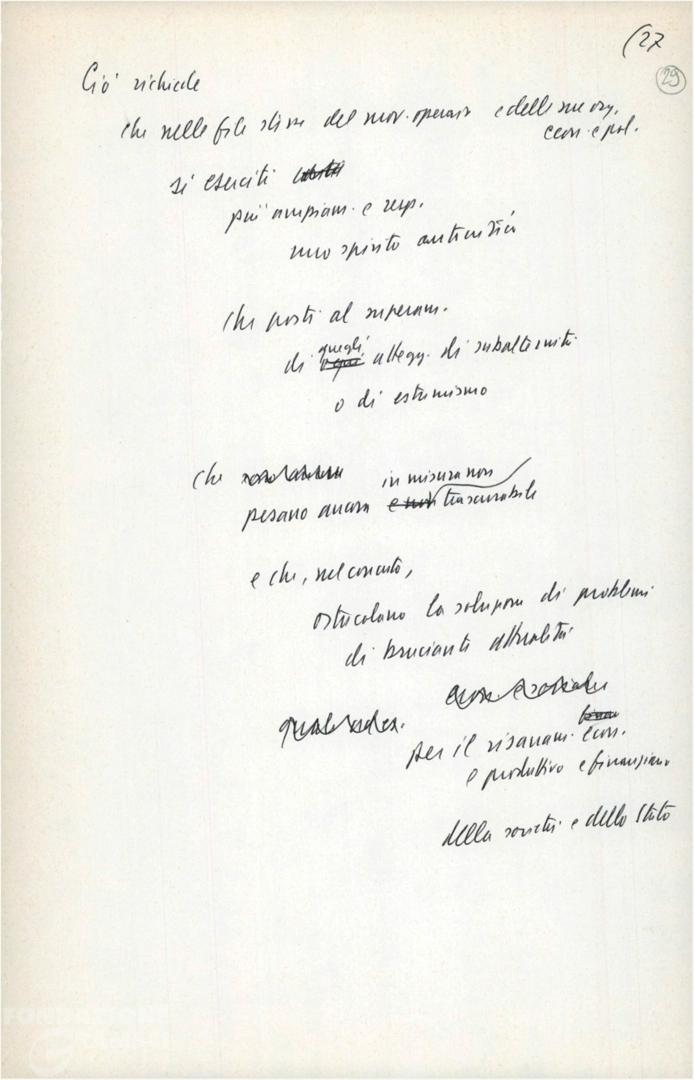 (27
29
Ciò richiede
che nelle file stesse del mov. operaio e delle sue org.
econ. e pol.
si eserciti
più ampiam. e resp.
uno spirito autocritico
che porti al superam.
di quegli attegg. di subalternità
o di estremismo
che in misura non
pesano ancora trascurabile
e che, nel concreto,
ostacolano la soluzione di problemi
di bruciante attualità
per il risanam. econ.
e produttivo e finanziario
della società e dello Stato
FONDAZIONE